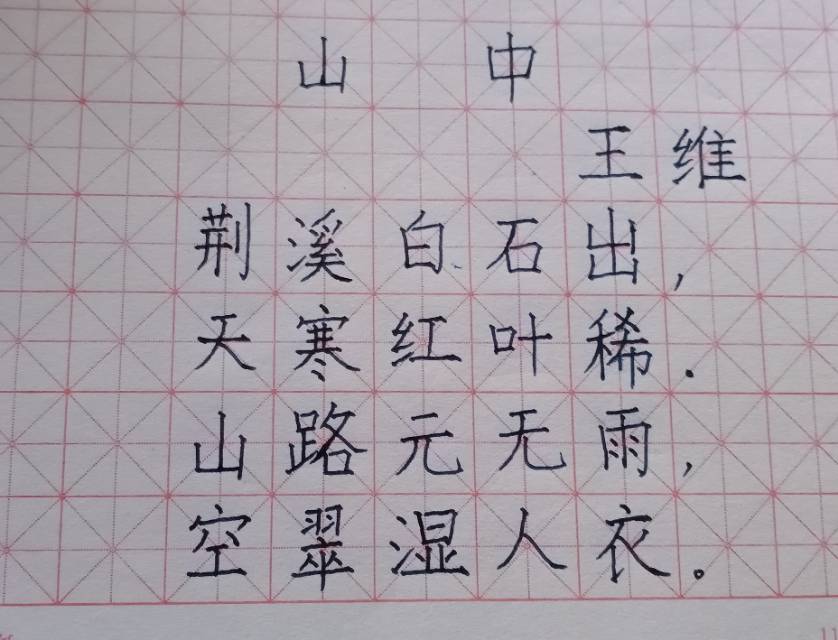 山中
王维
荆溪白石出，
天寒红叶稀.
山路元无雨，
空翠湿人衣。